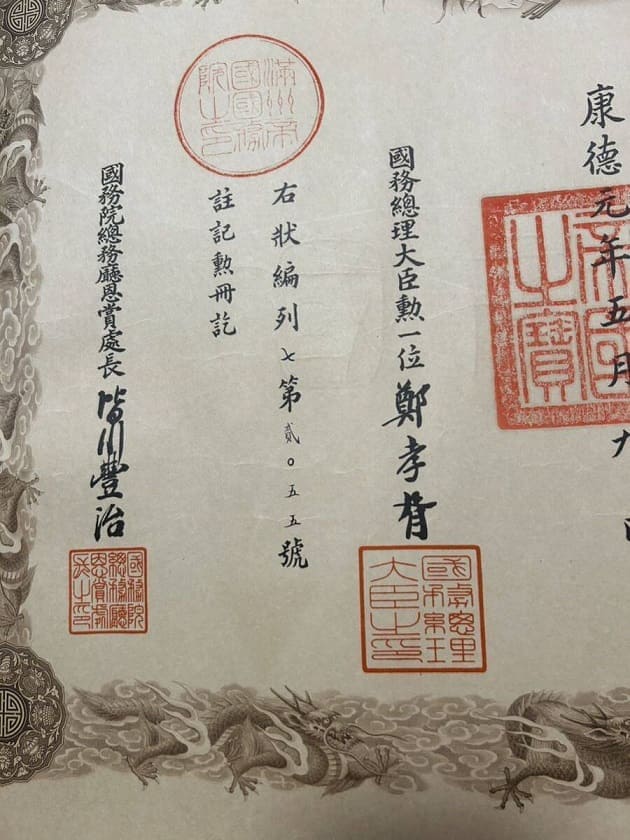 康德元年五月九
帝國之寶
國務總理大臣勲一位鄭孝胥
國務總理大臣之印
右狀編列七第貳〇五五號
註記勲冊訖
滿州帝國國務院之印
國務院總務廳恩賞處長皆川豐治
國務院總務廳恩賞處長之印